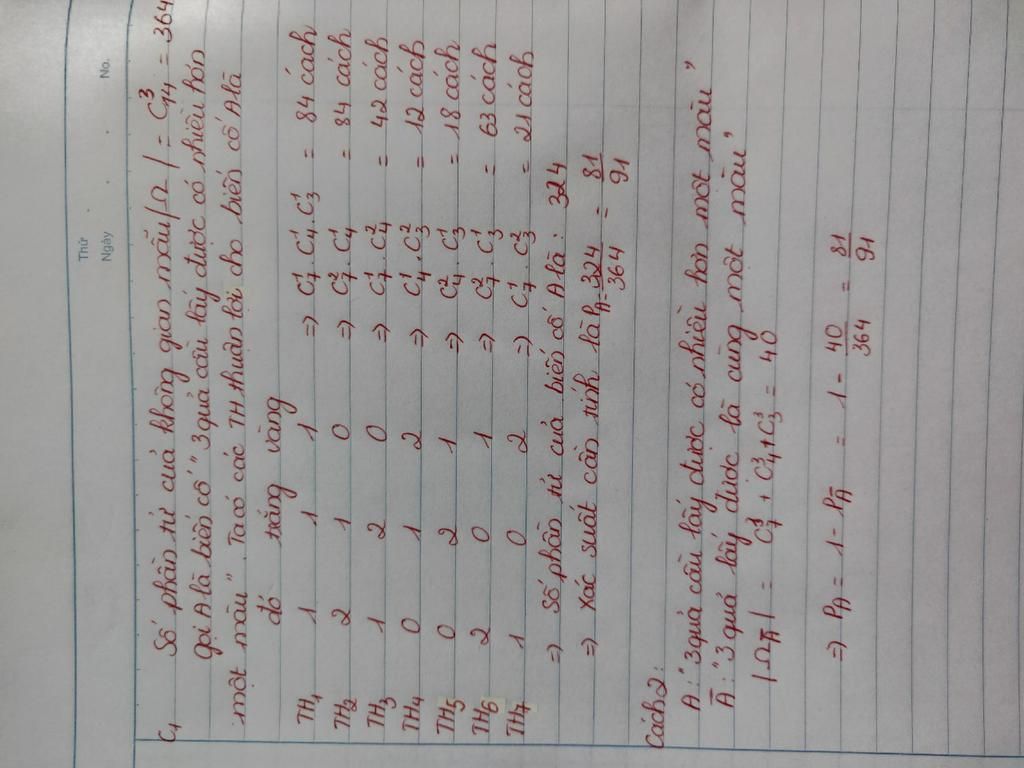 Thứ
Ngày
No.
C₁ Số phần tử của không gian mẫu |Ω| = C³₁₄ = 364
gọi A là biến cố "3 quả cầu lấy được có nhiều hơn
một màu". Ta có các TH thuận lợi cho biến cố A là
đỏ trắng vàng
TH₁ 1 1 1 => C¹₇.C¹₄.C¹₃ = 84 cách
TH₂ 2 1 0 => C²₇.C¹₄ = 84 cách
TH₃ 1 2 0 => C¹₇.C²₄ = 42 cách
TH₄ 0 1 2 => C¹₄.C²₃ = 12 cách
TH₅ 0 2 1 => C²₄.C¹₃ = 18 cách
TH₆ 2 0 1 => C²₇.C¹₃ = 63 cách
TH₇ 1 0 2 => C¹₇.C²₃ = 21 cách
=> Số phần tử của biến cố A là: 324
=> Xác suất cần tính là P_A = 324/364 = 81/91
Cách 2:
A: "3 quả cầu lấy được có nhiều hơn một màu"
Ā: "3 quả lấy được là cùng một màu"
|Ω_Ā| = C³₇ + C³₄ + C³₃ = 40
=> P_A = 1 - P_Ā = 1 - 40/364 = 81/91